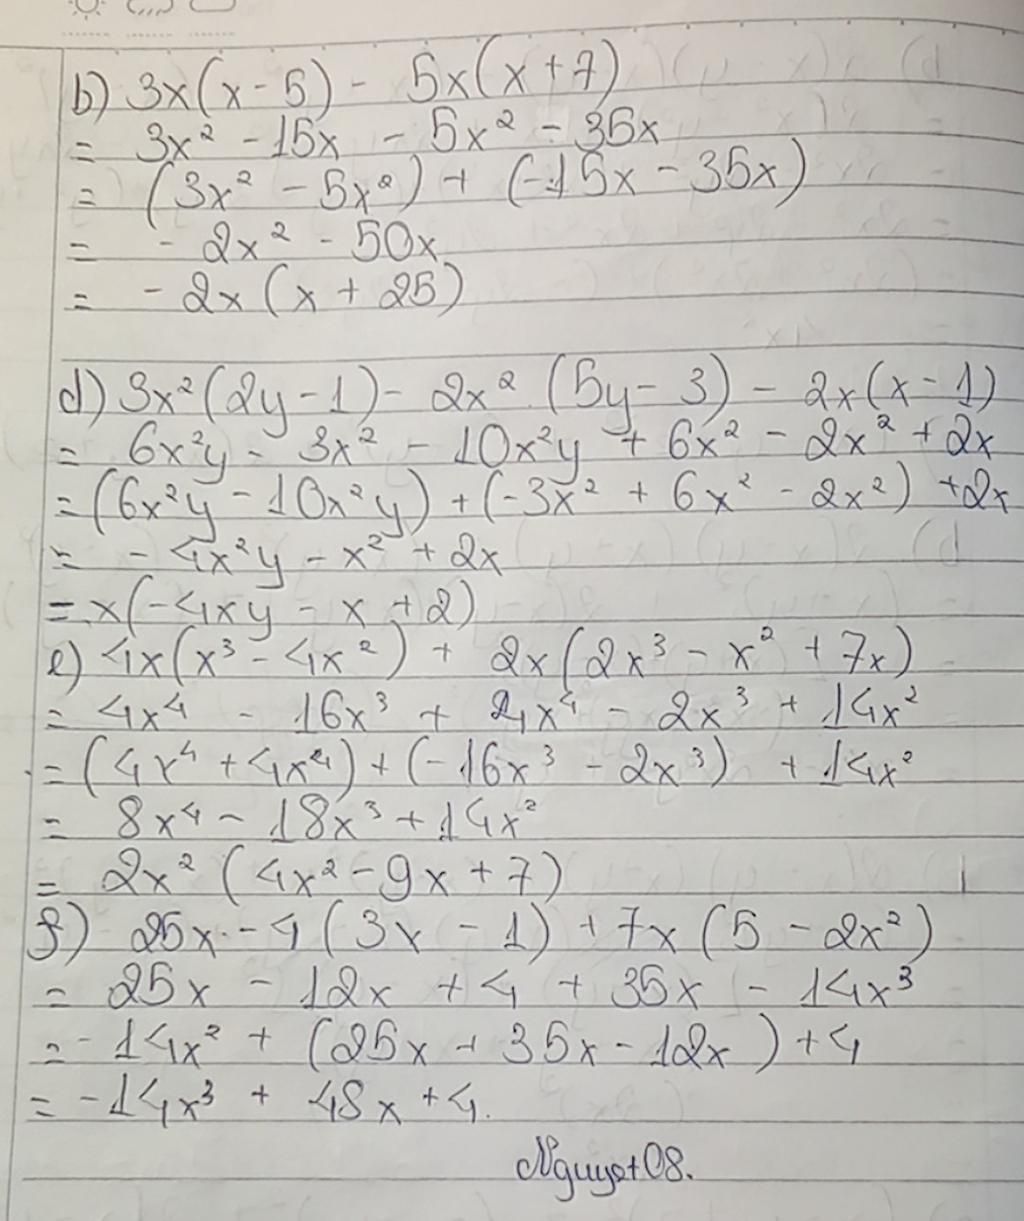 b) 3x(x - 5) - 5x(x + 7)
= 3x² - 15x - 5x² - 35x
= (3x² - 5x²) + (-15x - 35x)
= - 2x² - 50x
= - 2x (x + 25)
d) 3x² (2y - 1) - 2x² (5y - 3) - 2x(x - 1)
= 6x²y - 3x² - 10x²y + 6x² - 2x² + 2x
= (6x²y - 10x²y) + (-3x² + 6x² - 2x²) + 2x
= - 4x²y - x² + 2x
= x(-4xy - x + 2)
e) 4x(x³ - 4x²) + 2x(2x³ - x² + 7x)
= 4x⁴ - 16x³ + 4x⁴ - 2x³ + 14x²
= (4x⁴ + 4x⁴) + (-16x³ - 2x³) + 14x²
= 8x⁴ - 18x³ + 14x²
= 2x² (4x² - 9x + 7)
f) 25x - 4 (3x - 1) + 7x (5 - 2x²)
= 25x - 12x + 4 + 35x - 14x³
= - 14x² + (25x + 35x - 12x) + 4
= - 14x³ + 48x + 4.
Nguyet08.